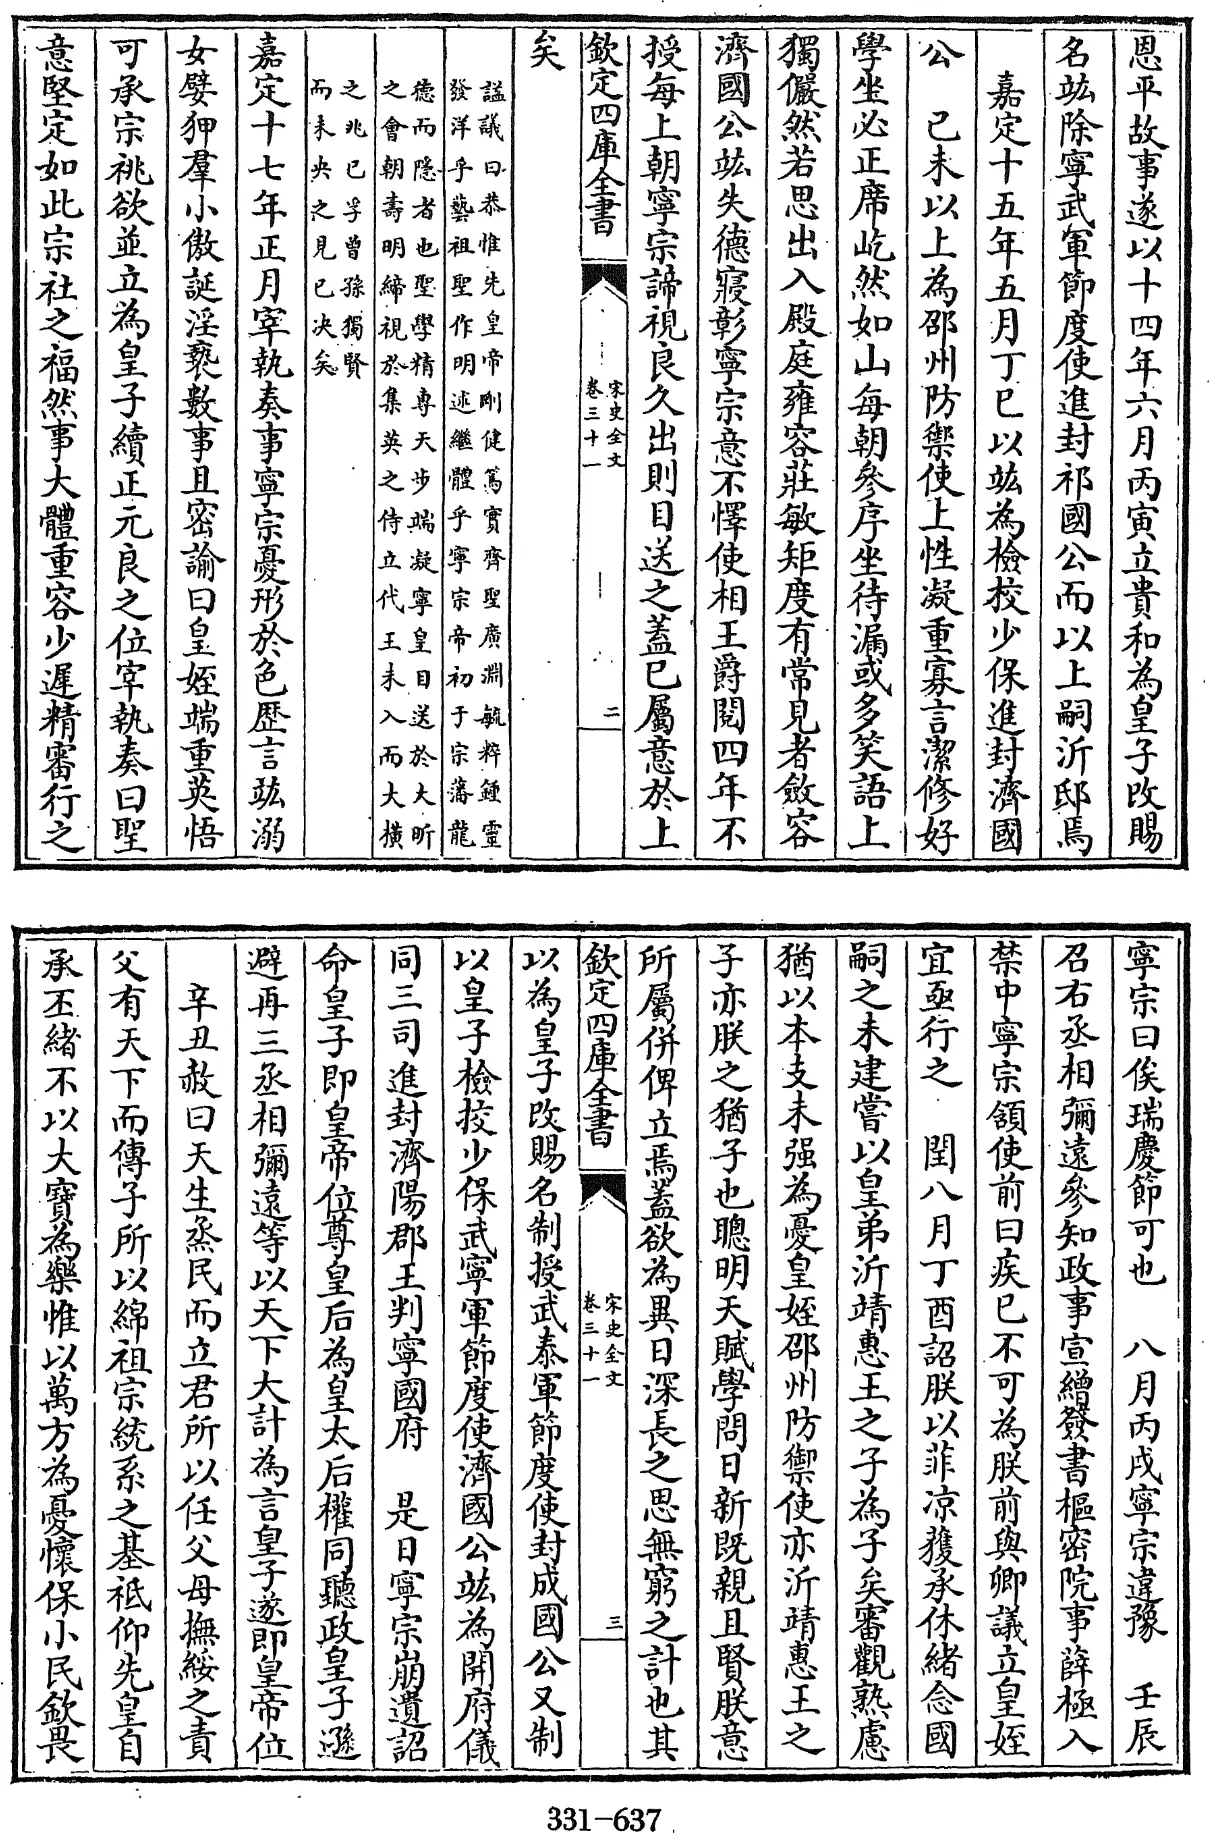 恩平故事遂以十四年六月丙寅立貴和為皇子改賜
名竑除寧武軍節度使進封祁國公而以上嗣沂邸焉
嘉定十五年五月丁巳以竑為檢校少保進封濟國
公　已未以上為邵州防禦使上性凝重寡言潔修好
學坐必正席屹然如山每朝參序坐待漏或多笑語上
獨儼然若思出入殿庭雍容莊敏矩度有常見者斂容
濟國公竑失德寖彰寧宗意不懌使相王爵閱四年不
授每上朝寧宗諦視良久出則目送之蓋已屬意於上
欽定四庫全書
宋史全文
卷三十一
二
矣
諡議曰恭惟先皇帝剛健篤實齊聖廣淵毓粹鍾靈
發洋乎藝祖聖作明述繼體乎寧宗帝初于宗藩龍
德而隱者也聖學精專天步端凝寧皇目送於大昕
之會朝壽明締視於集英之侍立代王未入而大橫
之兆已孚曾孫獨賢
而未央之見已决矣
嘉定十七年正月宰執奏事寧宗憂形於色歷言竑溺
女嬖狎羣小傲誕淫褻數事且密諭曰皇姪端重英悟
可承宗祧欲並立為皇子續正元良之位宰執奏曰聖
意堅定如此宗社之福然事大體重容少遲精審行之
寧宗曰俟瑞慶節可也　八月丙戌寧宗違豫　壬辰
召右丞相彌遠參知政事宣繒簽書樞密院事薛極入
禁中寧宗頷使前曰疾已不可為朕前與卿議立皇姪
宜亟行之　閏八月丁酉詔朕以菲凉獲承休緒念國
嗣之未建嘗以皇弟沂靖惠王之子為子矣審觀熟慮
猶以本支未强為憂皇姪邵州防禦使亦沂靖惠王之
子亦朕之猶子也聰明天賦學問日新既親且賢朕意
所屬併俾立焉蓋欲為異日深長之思無窮之計也其
欽定四庫全書
宋史全文
卷三十一
三
以為皇子改賜名制授武泰軍節度使封成國公又制
以皇子檢校少保武寧軍節度使濟國公竑為開府儀
同三司進封濟陽郡王判寧國府　是日寧宗崩遺詔
命皇子即皇帝位尊皇后為皇太后權同聽政皇子遜
避再三丞相彌遠等以天下大計為言皇子遂即皇帝位
辛丑赦曰天生烝民而立君所以任父母撫綏之責
父有天下而傳子所以綿祖宗統系之基祗仰先皇自
承丕緒不以大寶為樂惟以萬方為憂懷保小民欽畏
331-637